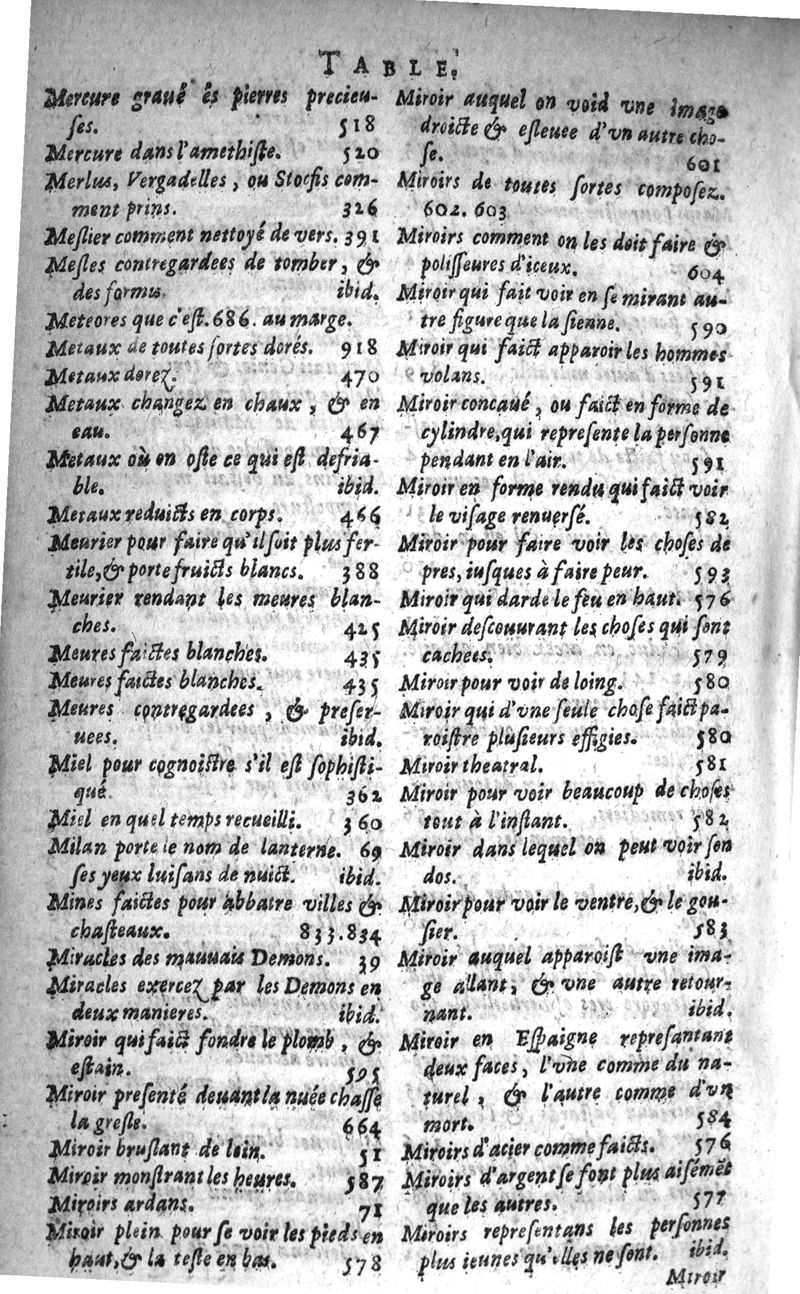 TABLE.
Mercure graué és pierres precieu-
ſes. 518
Mercure dans l'amethiſte. 520
Merlus, Vergadelles, ou Stocfis com-
ment prins. 326
Meſlier comment nettoyé de vers. 391
Meſles contregardees de tomber, &
des formis. ibid.
Meteores que c'eſt. 686. au marge.
Metaux de toutes ſortes dorés. 918
Metaux dorez. 470
Metaux changez en chaux, & en
eau. 467
Metaux où on oſte ce qui eſt defria-
ble. ibid.
Metaux reduicts en corps. 466
Meurier pour faire qu'il ſoit plus fer-
tile, & porte fruicts blancs. 388
Meurier rendant les meures blan-
ches. 425
Meures faictes blanches. 435
Meures faictes blanches. 435
Meures contregardees, & preſer-
uees. ibid.
Miel pour cognoiſtre s'il eſt ſophiſti-
qué. 362
Miel en quel temps recueilli. 360
Milan porte le nom de lanterne. 69
ſes yeux luiſans de nuict. ibid.
Mines faictes pour abbatre villes &
chaſteaux. 833.834
Miracles des mauuais Demons. 39
Miracles exercez par les Demons en
deux manieres. ibid.
Miroir qui faict fondre le plomb, &
eſtain. 595
Miroir preſenté deuant la nuée chaſſe
la greſle. 664
Miroir bruſlant de loin. 51
Miroir monſtrant les heures. 587
Miroirs ardans. 71
Miroir plein pour ſe voir les pieds en
haut, & la teſte en bas. 578
Miroir auquel on void vne Image
droicte & eſleuee d'vn autre cho-
ſe. 601
Miroirs de toutes ſortes compoſez.
602. 603
Miroirs comment on les doit faire &
poliſſeures d'iceux. 604
Miroir qui fait voir en ſe mirant au-
tre figure que la ſienne. 590
Miroir qui faict apparoir les hommes
volans. 591
Miroir concaué, ou faict en forme de
cylindre, qui repreſente la perſonne
pendant en l'air. 591
Miroir en forme rendu qui faict voir
le viſage renuerſé. 582
Miroir pour faire voir les choſes de
pres, iuſques à faire peur. 593
Miroir qui darde le feu en haut. 576
Miroir deſcouurant les choſes qui ſont
cachees. 579
Miroir pour voir de loing. 580
Miroir qui d'vne ſeule choſe faict pa-
roiſtre pluſieurs effigies. 580
Miroir theatral. 581
Miroir pour voir beaucoup de choſes
tout à l'inſtant. 582
Miroir dans lequel on peut voir ſon
dos. ibid.
Miroir pour voir le ventre, & le gou-
ſier. 583
Miroir auquel apparoiſt vne ima-
ge allant, & vne autre retour-
nant. ibid.
Miroir en Eſpaigne repreſantant
deux faces, l'vne comme du na-
turel, & l'autre comme d'vn
mort. 584
Miroirs d'acier comme faicts. 576
Miroirs d'argent ſe font plus aiſémẽt
que les autres. 577
Miroirs repreſentans les perſonnes
plus ieunes qu'elles ne ſont. ibid.
Miroir